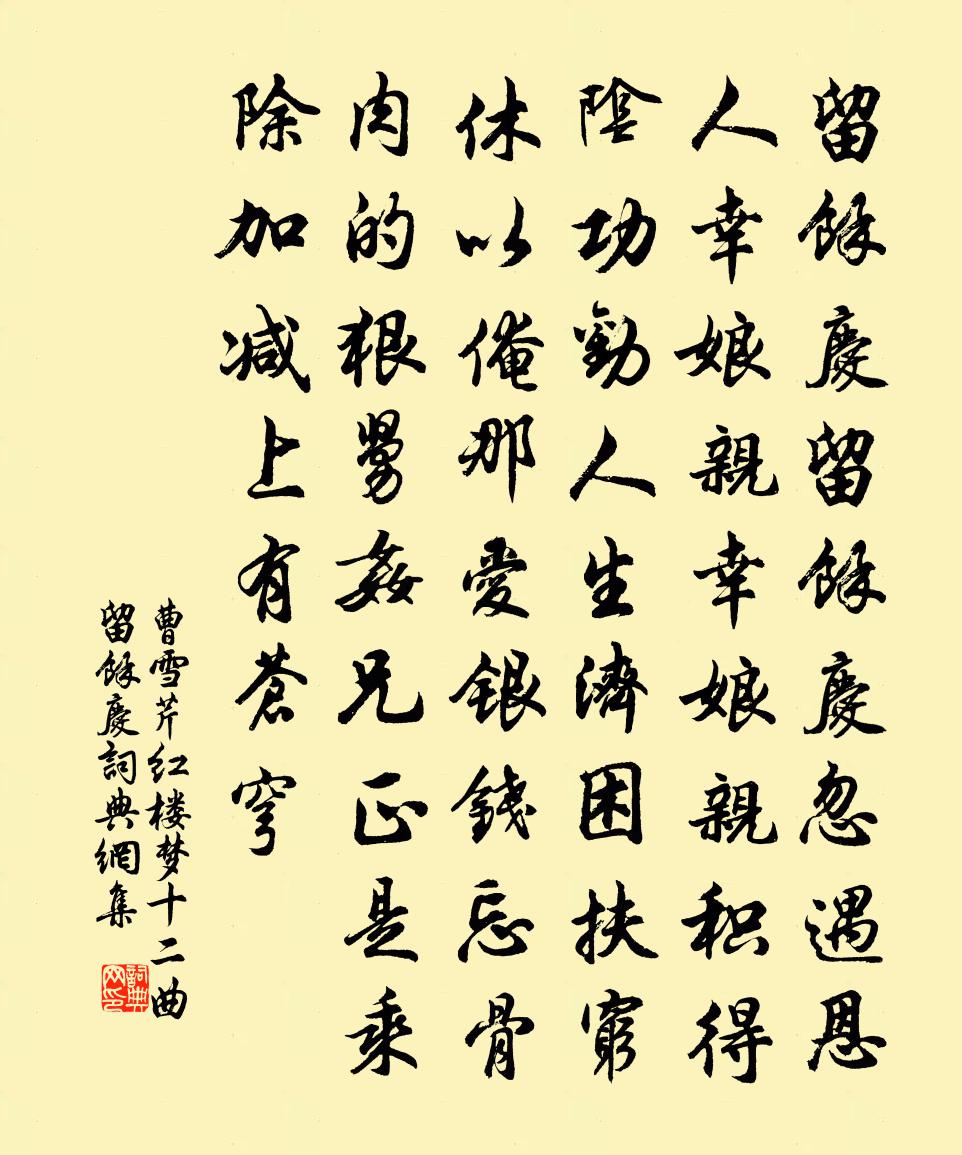 留餘慶留餘慶忽遇恩
人幸娘親幸娘親积得
陰功勸人生濟困扶窮
休以俺那愛銀錢忘骨
肉的狠舅姦兄正是乘
除加减上有蒼穹
曹雪芹红楼梦十二曲
留餘慶詞典網集
詞典网印